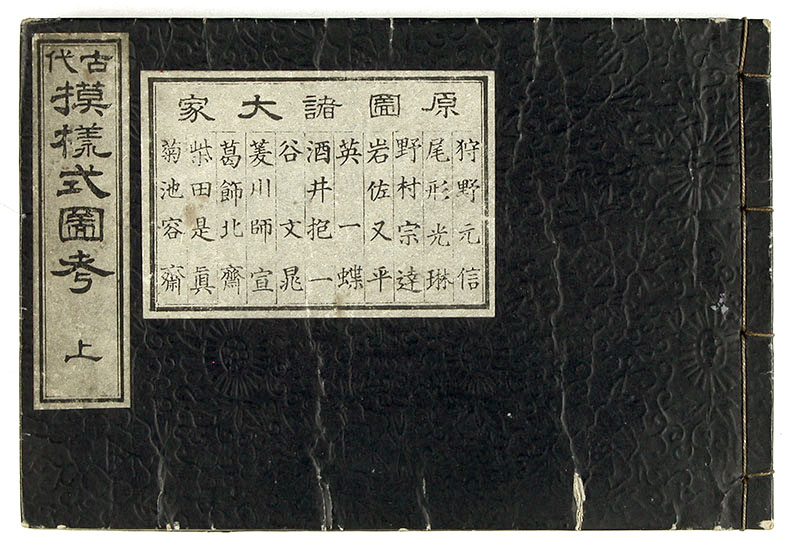 古代
摸樣式圖考
上
原圖諸大家
狩野元信
尾形光琳
野村宗達
岩佐又平
英一蝶
酒井抱一
谷文晁
菱川師宣
葛飾北齋
柴田是眞
菊池容齋